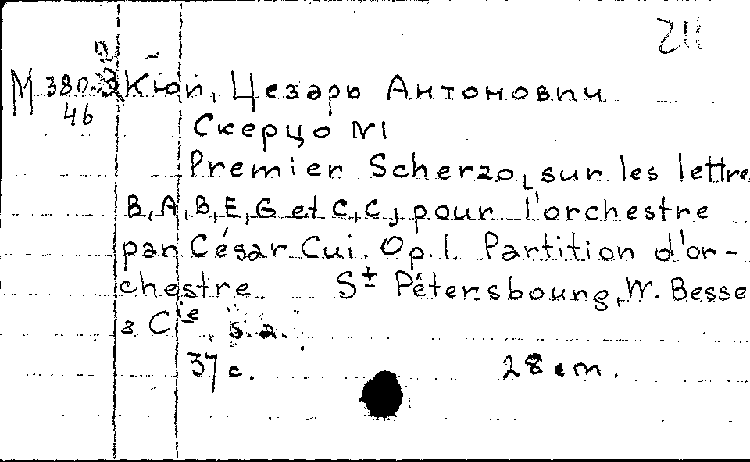 211
М 380-3 Кюи, Цезарь Антонович
46
Скерцо №1
Premier Scherzo, sur les lettre
B, A, B, E, G et C, C, pour l'orchestre
par César Cui. Op. 1. Partition d'or-
chestre St Pétersbourg, W. Besse
з Cie s.a.
37 с. 28 cm.